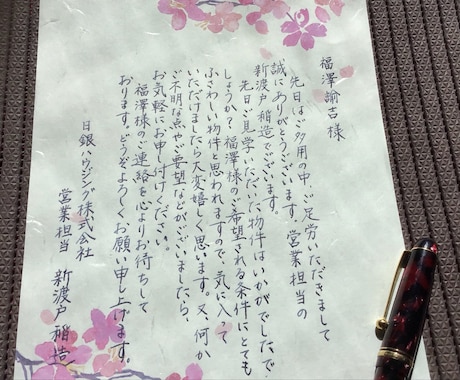 福澤諭吉様
先日はご多用の中、ご足労いただきまして
誠にありがとうございます。営業担当の
新渡戸稲造でございます。
先日ご見学いただいた物件はいかがでしたで
しょうか？福澤様のご希望される条件にとても
ふさわしい物件と思われますので、気に入って
いただけましたら大変嬉しく思います。又、何か
ご不明な点やご要望などがございましたら、
お気軽にお申し付けください。
福澤様のご連絡を心よりお待ちして
おります。どうぞよろしくお願い申し上げます。
日銀ハウジング株式会社
営業担当 新渡戸稲造